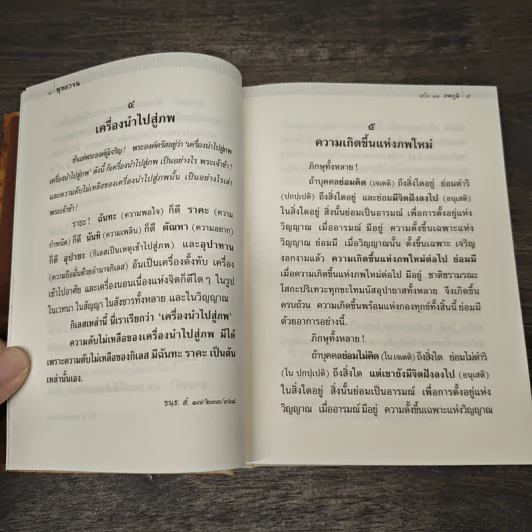 ๘ พุทธวจน
๔
เครื่องนำไปสู่ภพ
ข้าแต่พระองค์ผู้เจริญ! พระองค์ตรัสอยู่ว่า 'เครื่องนำไปสู่ภพ
เครื่องนำไปสู่ภพ' ดังนี้ ก็เครื่องนำไปสู่ภพ เป็นอย่างไร พระเจ้าข้า!
และความดับไม่เหลือของเครื่องนำไปสู่ภพนั้น เป็นอย่างไรเล่า
พระเจ้าข้า!
ราธะ! ฉันทะ (ความพอใจ) ก็ดี ราคะ (ความ
กำหนัด) ก็ดี นันทิ (ความเพลิน) ก็ดี ตัณหา (ความอยาก)
ก็ดี อุปายะ (กิเลสเป็นเหตุเข้าไปสู่ภพ) และอุปาทาน
(ความถือมั่นด้วยอำนาจกิเลส) อันเป็นเครื่องตั้งทับ เครื่อง
เข้าไปอาศัย และเครื่องนอนเนื่องแห่งจิตก็ดีใดๆ ในรูป
ในเวทนา ในสัญญา ในสังขารทั้งหลาย และในวิญญาณ
กิเลสเหล่านี้ นี่เราเรียกว่า 'เครื่องนำไปสู่ภพ'
ความดับไม่เหลือของเครื่องนำไปสู่ภพ มีได้
เพราะความดับไม่เหลือของกิเลส มีฉันทะ ราคะ เป็นต้น
เหล่านั้นเอง
ขนฺธ. สํ. ๑๗/๒๓๓/๓๖๘.
ฉบับ ๑๑ ภพภูมิ ๙
๕
ความเกิดขึ้นแห่งภพใหม่
ภิกษุทั้งหลาย!
ถ้าบุคคลย่อมคิด (เจเตติ) ถึงสิ่งใดอยู่ ย่อมดำริ
(ปกปฺเปติ) ถึงสิ่งใดอยู่ และย่อมมีจิตฝังลงไป (อนุเสติ)
ในสิ่งใดอยู่ สิ่งนั้นย่อมเป็นอารมณ์ เพื่อการตั้งอยู่แห่ง
วิญญาณ เมื่ออารมณ์ มีอยู่ ความตั้งขึ้นเฉพาะแห่ง
วิญญาณ ย่อมมี เมื่อวิญญาณนั้น ตั้งขึ้นเฉพาะ เจริญ
งอกงามแล้ว ความเกิดขึ้นแห่งภพใหม่ต่อไป ย่อมมี
เมื่อความเกิดขึ้นแห่งภพใหม่ต่อไป มีอยู่ ชาติชรามรณะ
โสกะปริเทวะทุกขะโทมนัสอุปายาสทั้งหลาย จึงเกิดขึ้น
ครบถ้วน ความเกิดขึ้นพร้อมแห่งกองทุกข์ทั้งสิ้นนี้ ย่อมมี
ด้วยอาการอย่างนี้.
ภิกษุทั้งหลาย!
ถ้าบุคคลย่อมไม่คิด (โน เจเตติ) ถึงสิ่งใด ย่อมไม่ดำริ
(โน ปกปฺเปติ) ถึงสิ่งใด แต่เขายังมีจิตฝังลงไป (อนุเสติ)
ในสิ่งใดอยู่ สิ่งนั้นย่อมเป็นอารมณ์ เพื่อการตั้งอยู่แห่ง
วิญญาณ เมื่ออารมณ์ มีอยู่ ความตั้งขึ้นเฉพาะแห่งวิญญาณ